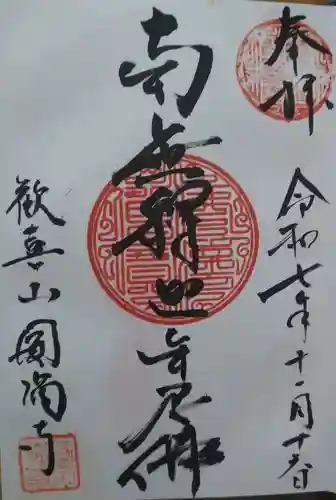 奉拝
令和七年十一月十六日
南無釋迦牟尼佛
歓喜山圓満寺